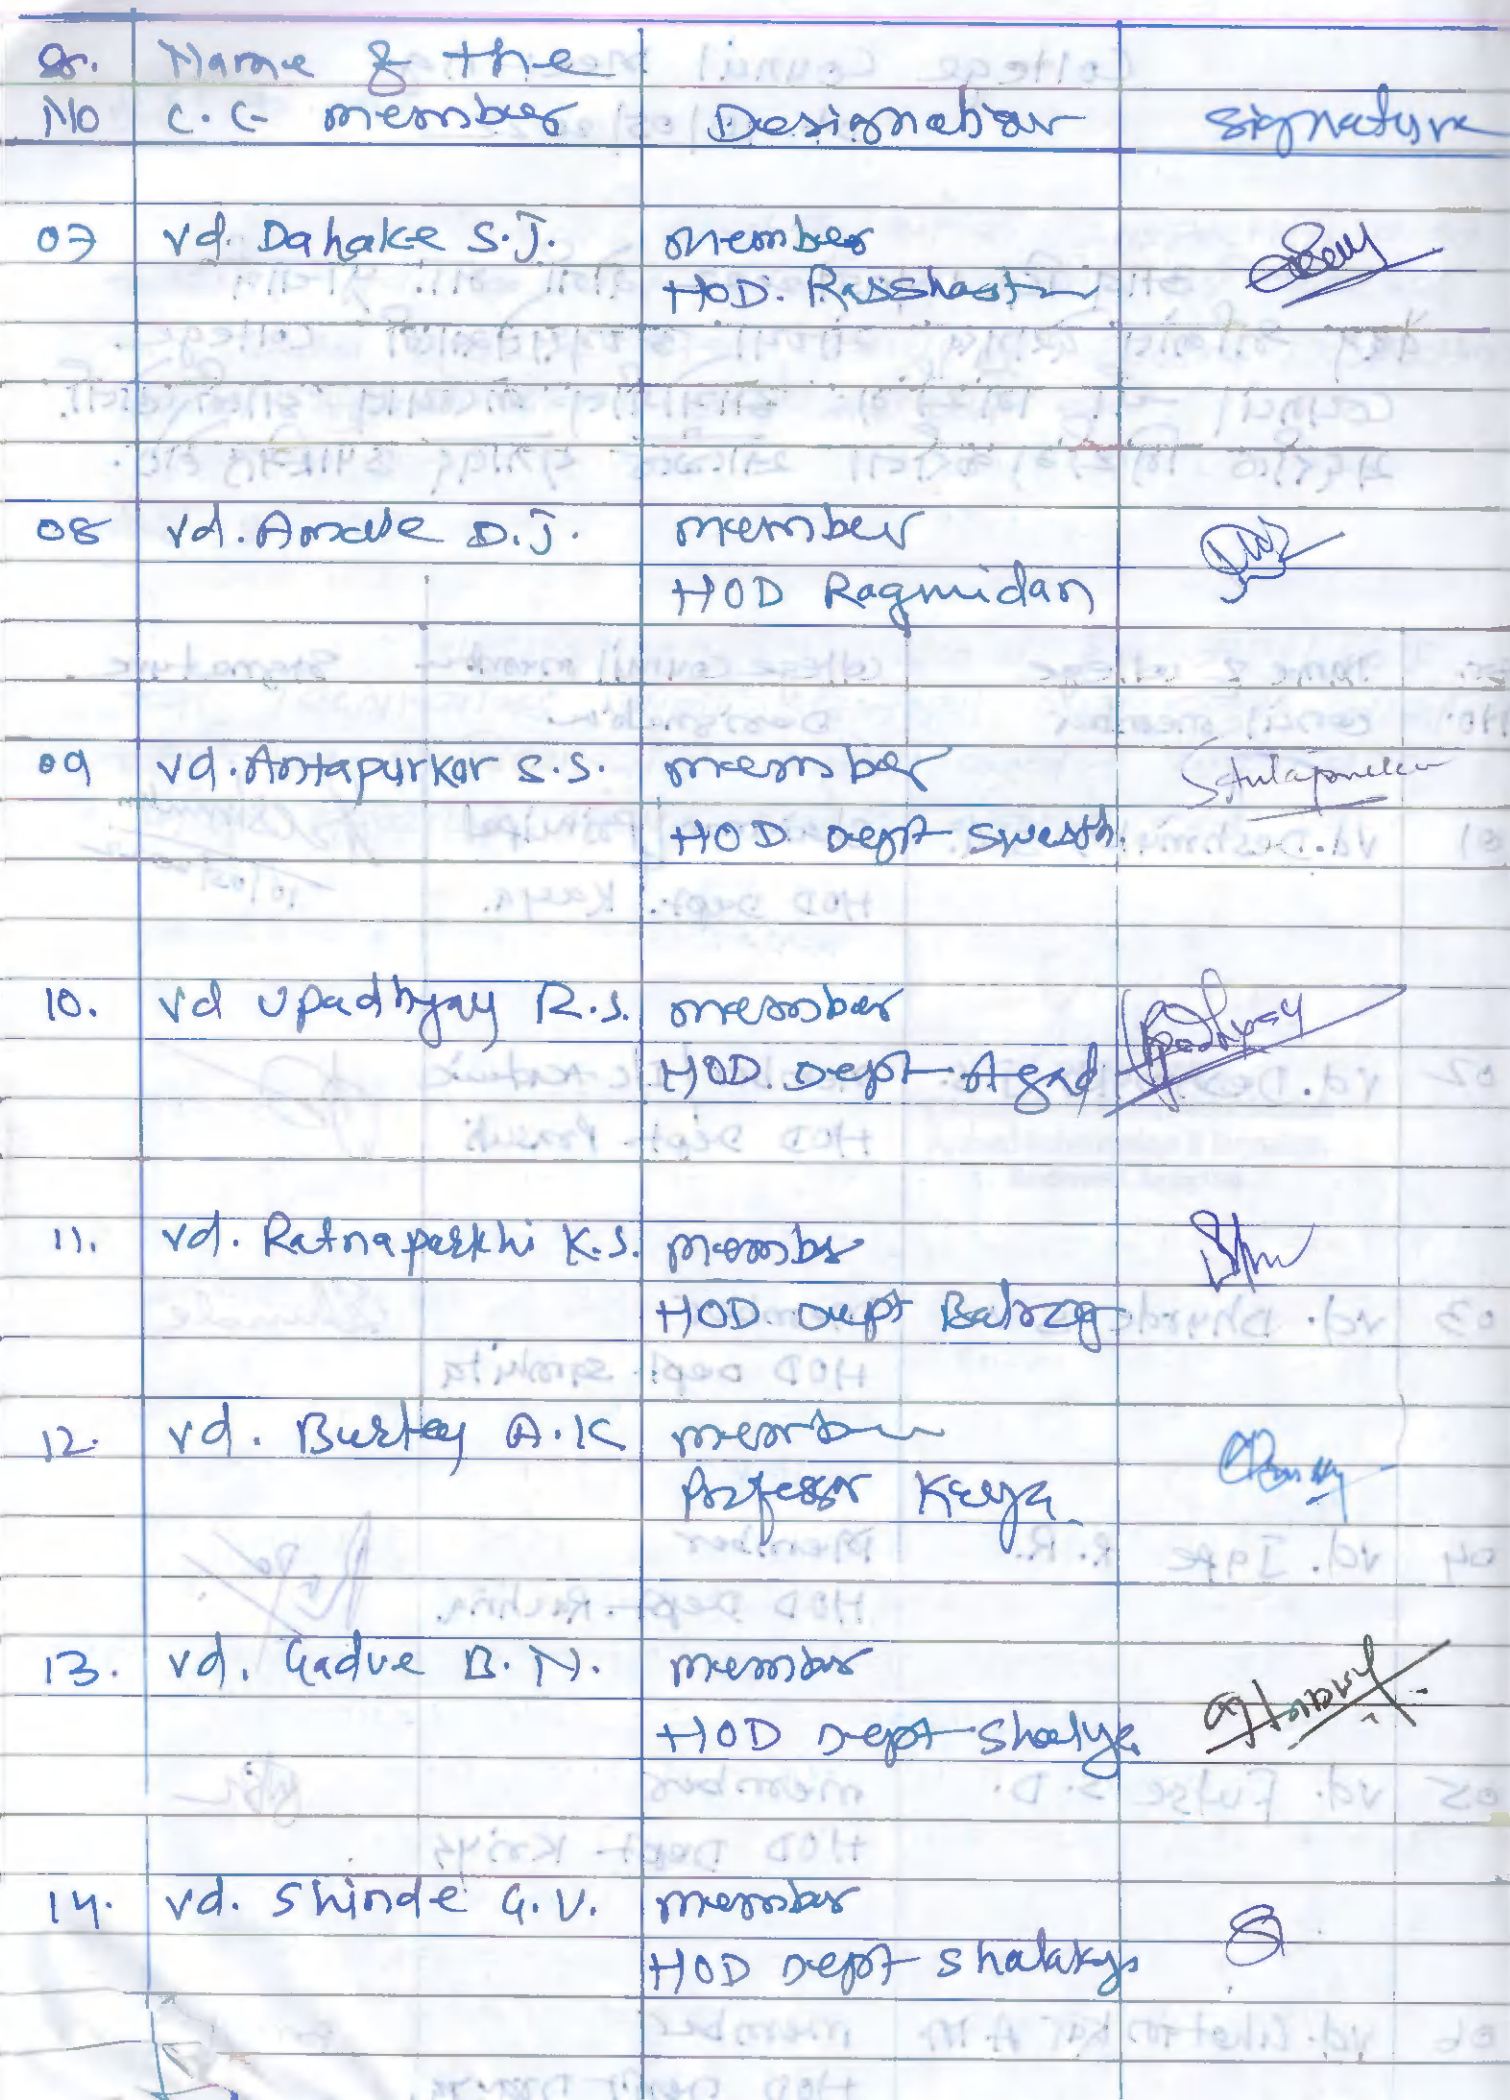 Sr. Name of the
No C.C. member Designation Signature
07 Vd. Dahake S.J. member
HOD. Rasshastra
08 Vd. Amale D.J. member
HOD Rognidan
09 Vd. Antapurkar S.S. member
HOD. Dept Swasth.
10. Vd Upadhyay R.S. member
HOD. Dept Agad Upadhyay
11. Vd. Ratnaparkhi K.S. member
HOD. Dept Balrog
12. Vd. Burley A.K member
Professor Kaya
13. Vd. Gadve B.N. member
HOD Dept Shalya
14. Vd. Shinde G.V. member
HOD Dept Shalakya